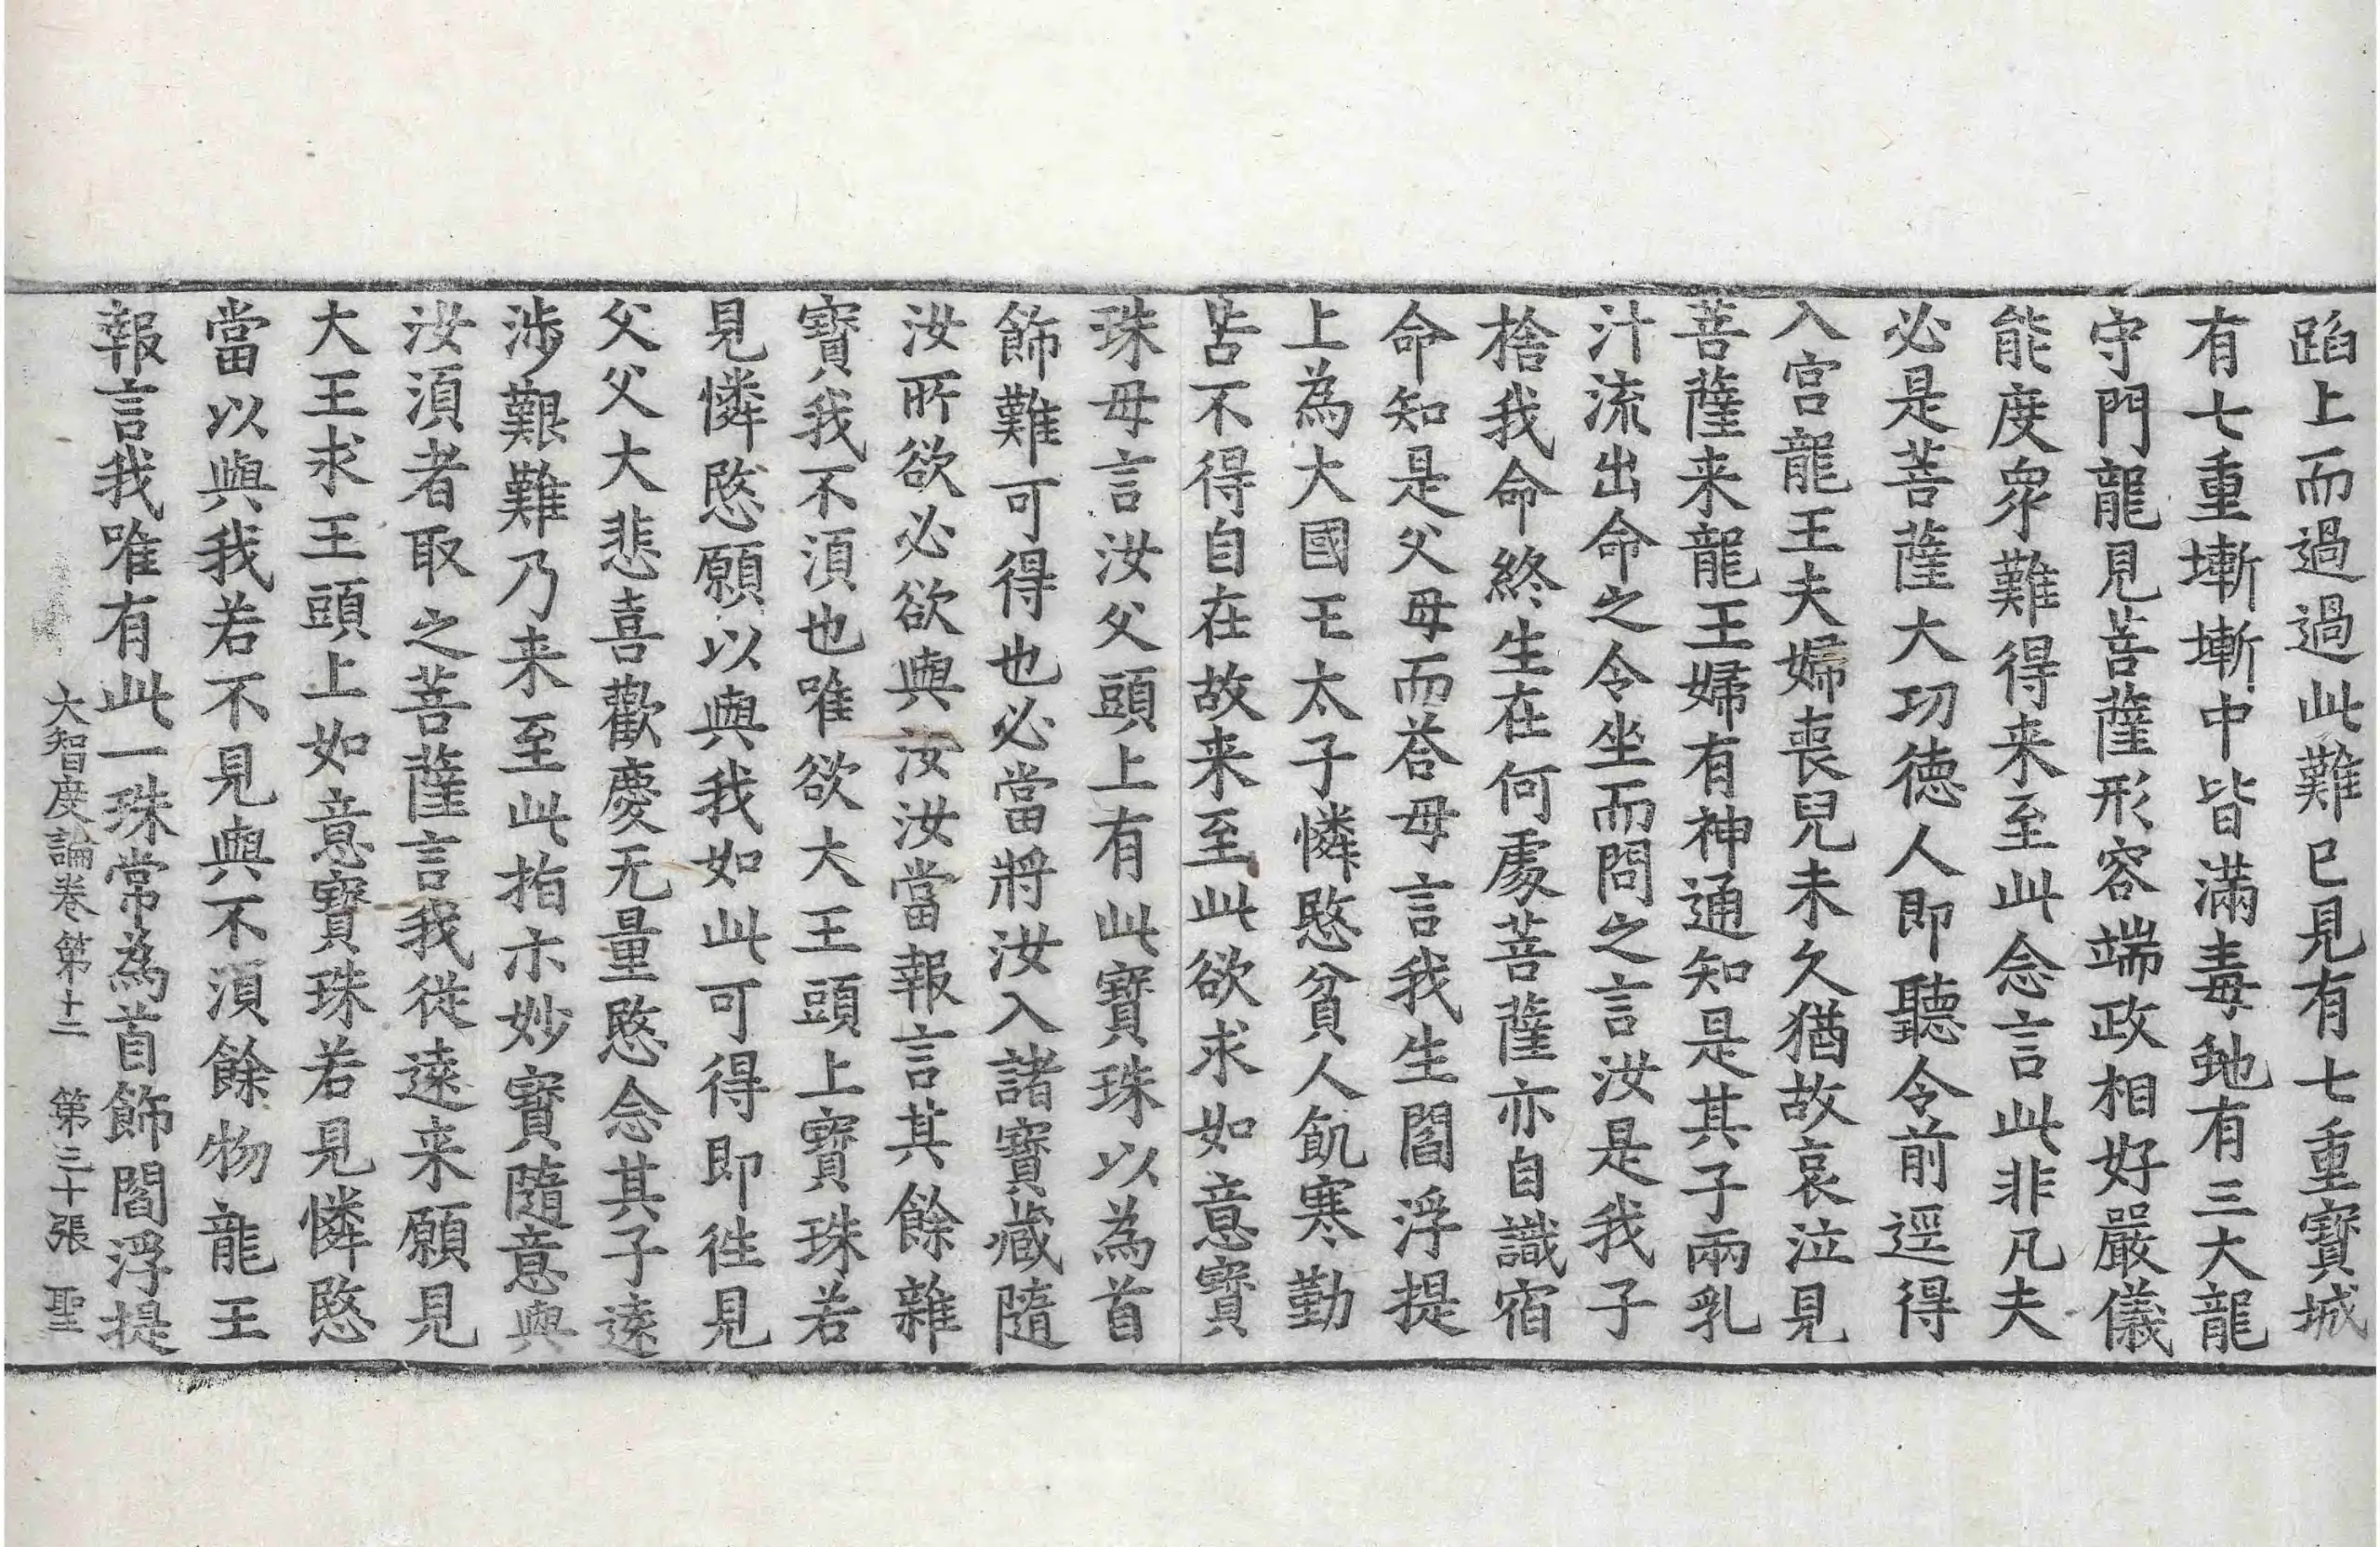 蹈上而過過此難已見有七重寶城
有七重塹塹中皆滿毒虵有三大龍
守門龍見菩薩形容端政相好嚴儀
能度衆難得来至此念言此非凡夫
必是菩薩大功德人即聽令前逕得
入宮龍王夫婦喪兒未久猶故哀泣見
菩薩来龍王婦有神通知是其子兩乳
汁流出命之令坐而問之言汝是我子
捨我命終生在何處菩薩亦自識宿
命知是父母而荅母言我生閻浮提
上為大國王太子憐愍貧人飢寒勤
苦不得自在故来至此欲求如意寶
珠母言汝父頭上有此寶珠以為首
飾難可得也必當將汝入諸寶藏隨
汝所欲必欲與汝汝當報言其餘雜
寶我不湏也唯欲大王頭上寶珠若
見憐愍願以與我如此可得即徃見
父父大悲喜歡慶无量愍念其子遠
涉艱難乃来至此指示妙寶隨意與
汝湏者取之菩薩言我從遠来願見
大王求王頭上如意寶珠若見憐愍
當以與我若不見與不湏餘物龍王
報言我唯有此一珠常為首飾閻浮提
大智度論卷第十二　第三十張　聖